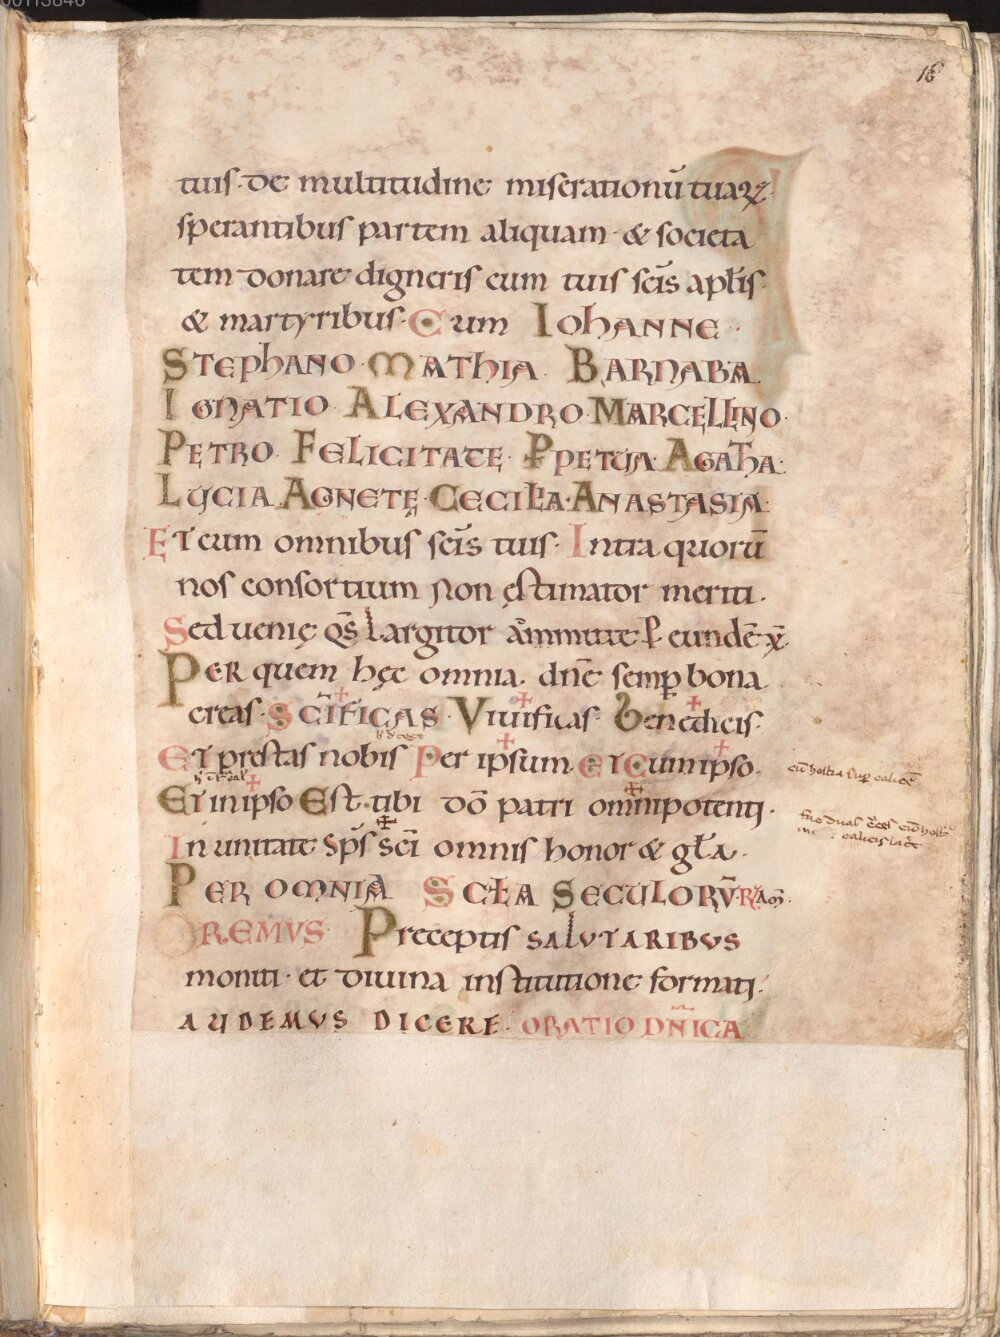 16
tuis· de multitudine miserationū tuaꝝ·
sperantibus partem aliquam· & societa
tem donare digneris cum tuis sc̄is apl̄is·
& martyribus· Cum Iohanne·
Stephano· Mathia· Barnaba·
Ignatio· Alexandro· Marcellino·
Petro· Felicitate· Ꝑpetua· Agatha·
Lucia Agnetę· Cecilia· Anastasia·
Et cum omnibus sc̄is tuis· Intra quorū
nos consortium non ęstimator meriti·
Sed uenię qs̄ largitor admitte· ꝑ eundē xp̄
Per quem hęc omnia· dn̄e semp̱ bona
creas· Sc̄ificas· Viuificas· Benedicis·
Et prestas nobis Per ipsum· Et Cum ipso·
Et in ipso Est· tibi do̅ patri omnipotenti·
In unitate sp̄s sc̄i omnis honor & gl̄a·
Per omnia Sc̄la Seculorū· R̷ Am̄·
Oremus· Preceptis salutaribus
moniti· et diuina institutione formati·
audemus dicere· Oratio dn̄ica
cū hostia sup̱ calicē